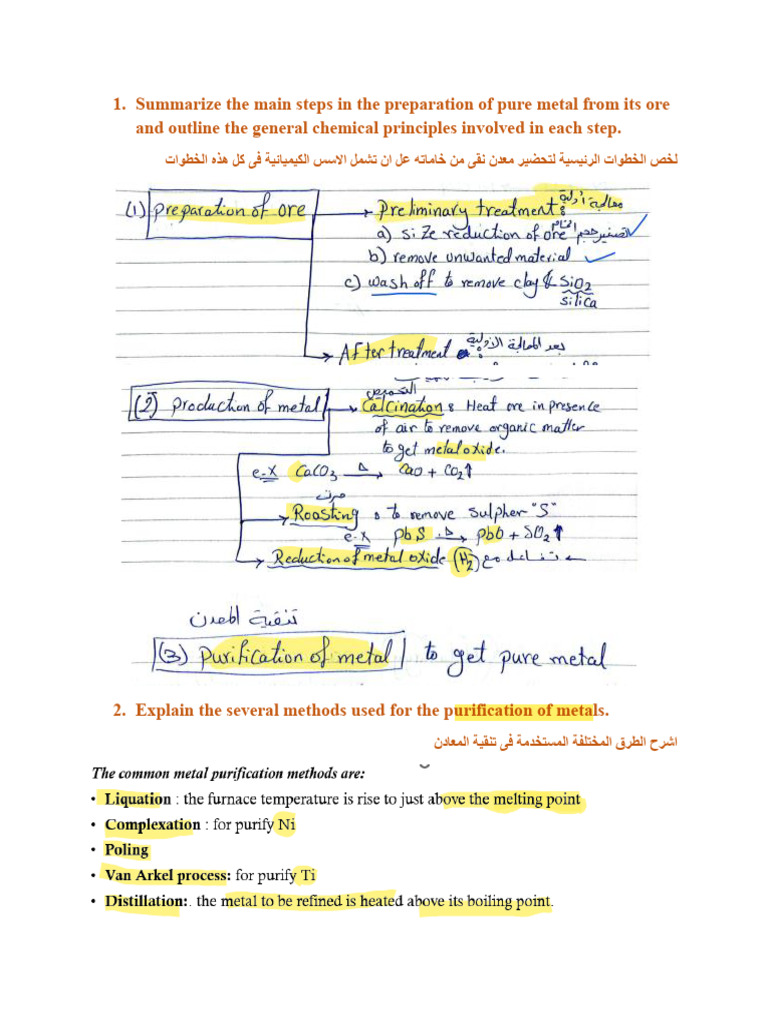 1. Summarize the main steps in the preparation of pure metal from its ore
and outline the general chemical principles involved in each step.
لخص الخطوات الرئيسية لتحضير معدن نقى من خاماته عل ان تشمل الاسس الكيميائية فى كل هذه الخطوات
(1) preparation of ore → Preliminary treatment: معالجة أولية
a) size reduction of ore تصغير حجم الخام ✓
b) remove unwanted material ✓
c) wash off to remove clay & SiO2
silica
→ After treatment : بعد المعالجة الأولية
(2) production of metal → Calcination : Heat ore in presence
of air to remove organic matter
to get metal oxide.
e-x CaCO3 —Δ→ CaO + CO2↑
→ Roasting : to remove sulpher "S"
e-x pbS —Δ→ pbO + SO2↑
→ Reduction of metal oxide (H2) تفاعل مع ←
تنقية المعدن
(3) purification of metal to get pure metal
2. Explain the several methods used for the purification of metals.
اشرح الطرق المختلفة المستخدمة فى تنقية المعادن
The common metal purification methods are:
• Liquation : the furnace temperature is rise to just above the melting point
• Complexation : for purify Ni
• Poling
• Van Arkel process: for purify Ti
• Distillation:. the metal to be refined is heated above its boiling point.